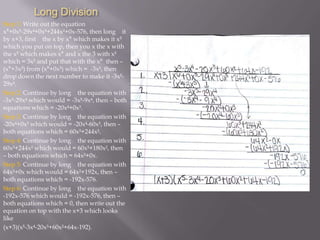 Long Division
Step 1. Write out the equation
x⁶+0x⁵-29x⁴+0x³+244x²+0x-576, then long it
by x+3, first the x by x⁵ which makes it x⁶
which you put on top, then you x the x with
the x⁵ which makes x⁶ and x the 3 with x⁵
which = 3x⁵ and put that with the x⁶ then –
(x⁶+3x⁵) from (x⁶+0x⁵) which = -3x⁵, then
drop down the next number to make it -3x⁵-
29x⁴.
Step 2. Continue by long the equation with
-3x⁵-29x⁴ which would = -3x⁵-9x⁴, then – both
equations which = -20x⁴+0x³.
Step 3. Continue by long the equation with
-20x⁴+0x³ which would = -20x⁴-60x³, then –
both equations which = 60x³+244x².
Step 4. Continue by long the equation with
60x³+244x² which would = 60x³+180x², then
– both equations which = 64x²+0x.
Step 5. Continue by long the equation with
64x²+0x which would = 64x²+192x, then –
both equations which = -192x-576.
Step 6. Continue by long the equation with
-192x-576 which would = -192x-576, then –
both equations which = 0, then write out the
equation on top with the x+3 which looks
like
(x+3)(x⁵-3x⁴-20x³+60x²+64x-192).
x⁵-3x⁴-20x³+60x²+64x-192
1. x+3 | x⁶+0x⁵-29x⁴+0x³+244x²+0x-576
-(x⁶+3x⁵)
2. -3x⁵-29x⁴
-(-3x⁵-9x⁴)
3. -20x⁴+0x³
-(-20x⁴-60x³)
4. 60x³+244x²
-(60x³+180x²)
5. 64x²+0x
-(64x²+192x)
6. -192x-576
-(-192x-576)
0
(x+3)(x⁵-3x⁴-20x³+60x²+64x-192)